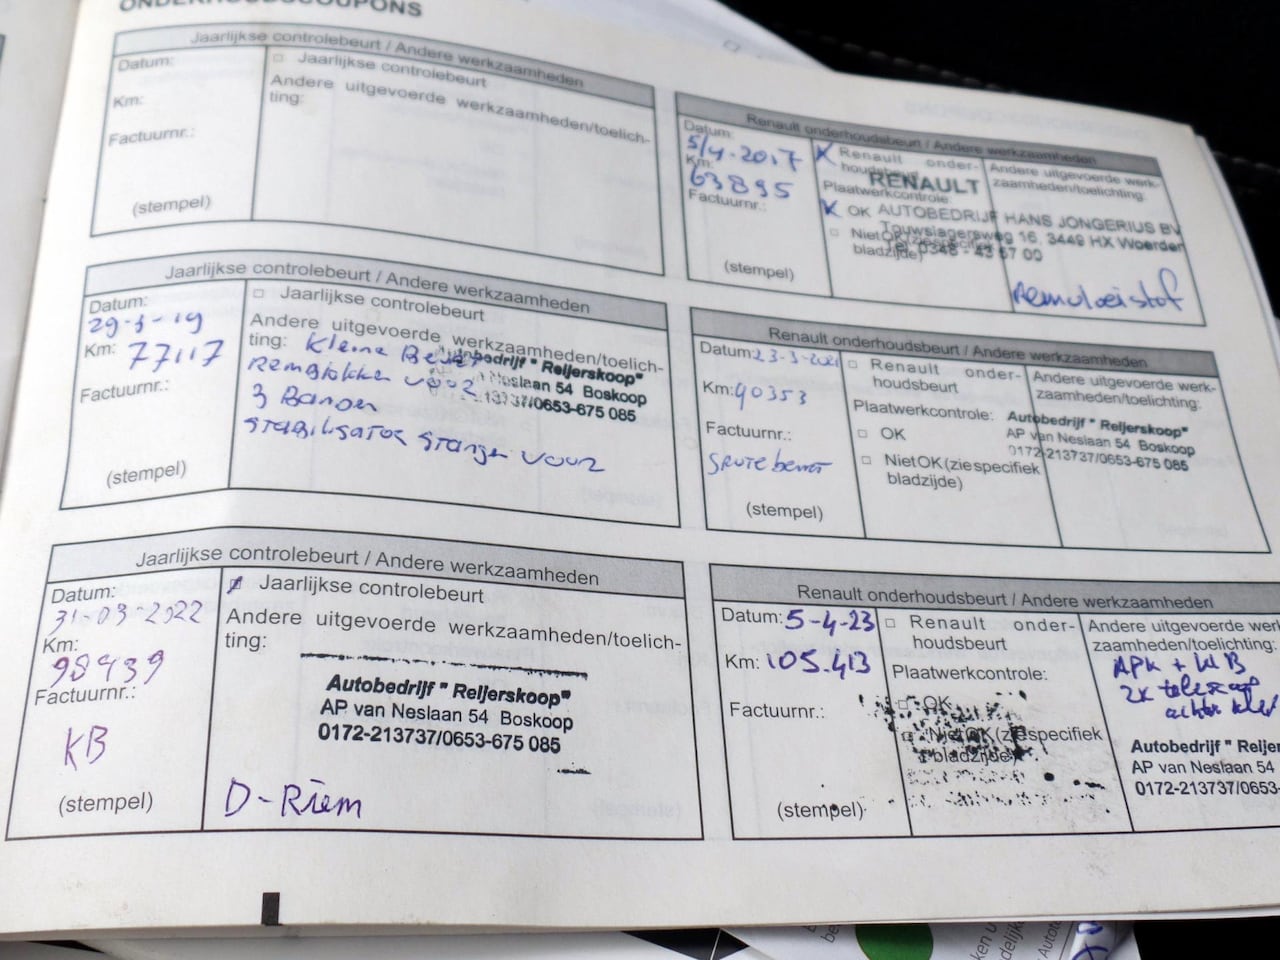 ONDERHOUDSCOUPONS
Jaarlijkse controlebeurt / Andere werkzaamheden
Datum:
Km:
Factuurnr.:
(stempel)
□ Jaarlijkse controlebeurt
Andere uitgevoerde werkzaamheden/toelich-
ting:
Renault onderhoudsbeurt / Andere werkzaamheden
Datum:
5/4-2017
Km:
63895
Factuurnr.:
(stempel)
Renault onder-
houdsbeurt
Plaatwerkcontrole:
OK
□ Niet OK (zie specifiek
bladzijde)
Andere uitgevoerde werk-
zaamheden/toelichting:
RENAULT
AUTOBEDRIJF HANS JONGERIUS BV
Touwslagersweg 16, 3449 HX Woerden
Tel. 0348 - 43 57 00
Remvloeistof
Jaarlijkse controlebeurt / Andere werkzaamheden
Datum:
29-3-19
Km: 77117
Factuurnr.:
(stempel)
□ Jaarlijkse controlebeurt
Andere uitgevoerde werkzaamheden/toelich-
ting: Kleine Beurt
Remblokken voor
3 Banden
stabilisator stangen voor
Autobedrijf " Reijerskoop"
Neslaan 54 Boskoop
213737/0653-675 085
Renault onderhoudsbeurt / Andere werkzaamheden
Datum: 23-3-2021
Km: 90353
Factuurnr.:
Grote beurt
(stempel)
□ Renault onder-
houdsbeurt
Plaatwerkcontrole:
□ OK
□ Niet OK (zie specifiek
bladzijde)
Andere uitgevoerde werk-
zaamheden/toelichting:
Autobedrijf " Reijerskoop"
AP van Neslaan 54 Boskoop
0172-213737/0653-675 085
Jaarlijkse controlebeurt / Andere werkzaamheden
Datum:
31-03-2022
Km:
98939
Factuurnr.:
KB
(stempel)
Jaarlijkse controlebeurt
Andere uitgevoerde werkzaamheden/toelich-
ting:
Autobedrijf " Reijerskoop"
AP van Neslaan 54 Boskoop
0172-213737/0653-675 085
D-Riem
Renault onderhoudsbeurt / Andere werkzaamheden
Datum: 5-4-23
Km: 105.413
Factuurnr.:
(stempel)
□ Renault onder-
houdsbeurt
Plaatwerkcontrole:
□ OK
□ Niet OK (zie specifiek
bladzijde)
Andere uitgevoerde werk-
zaamheden/toelichting:
APK + KB
2x
achter klep
Autobedrijf " Reijer
AP van Neslaan 54
0172-213737/0653-